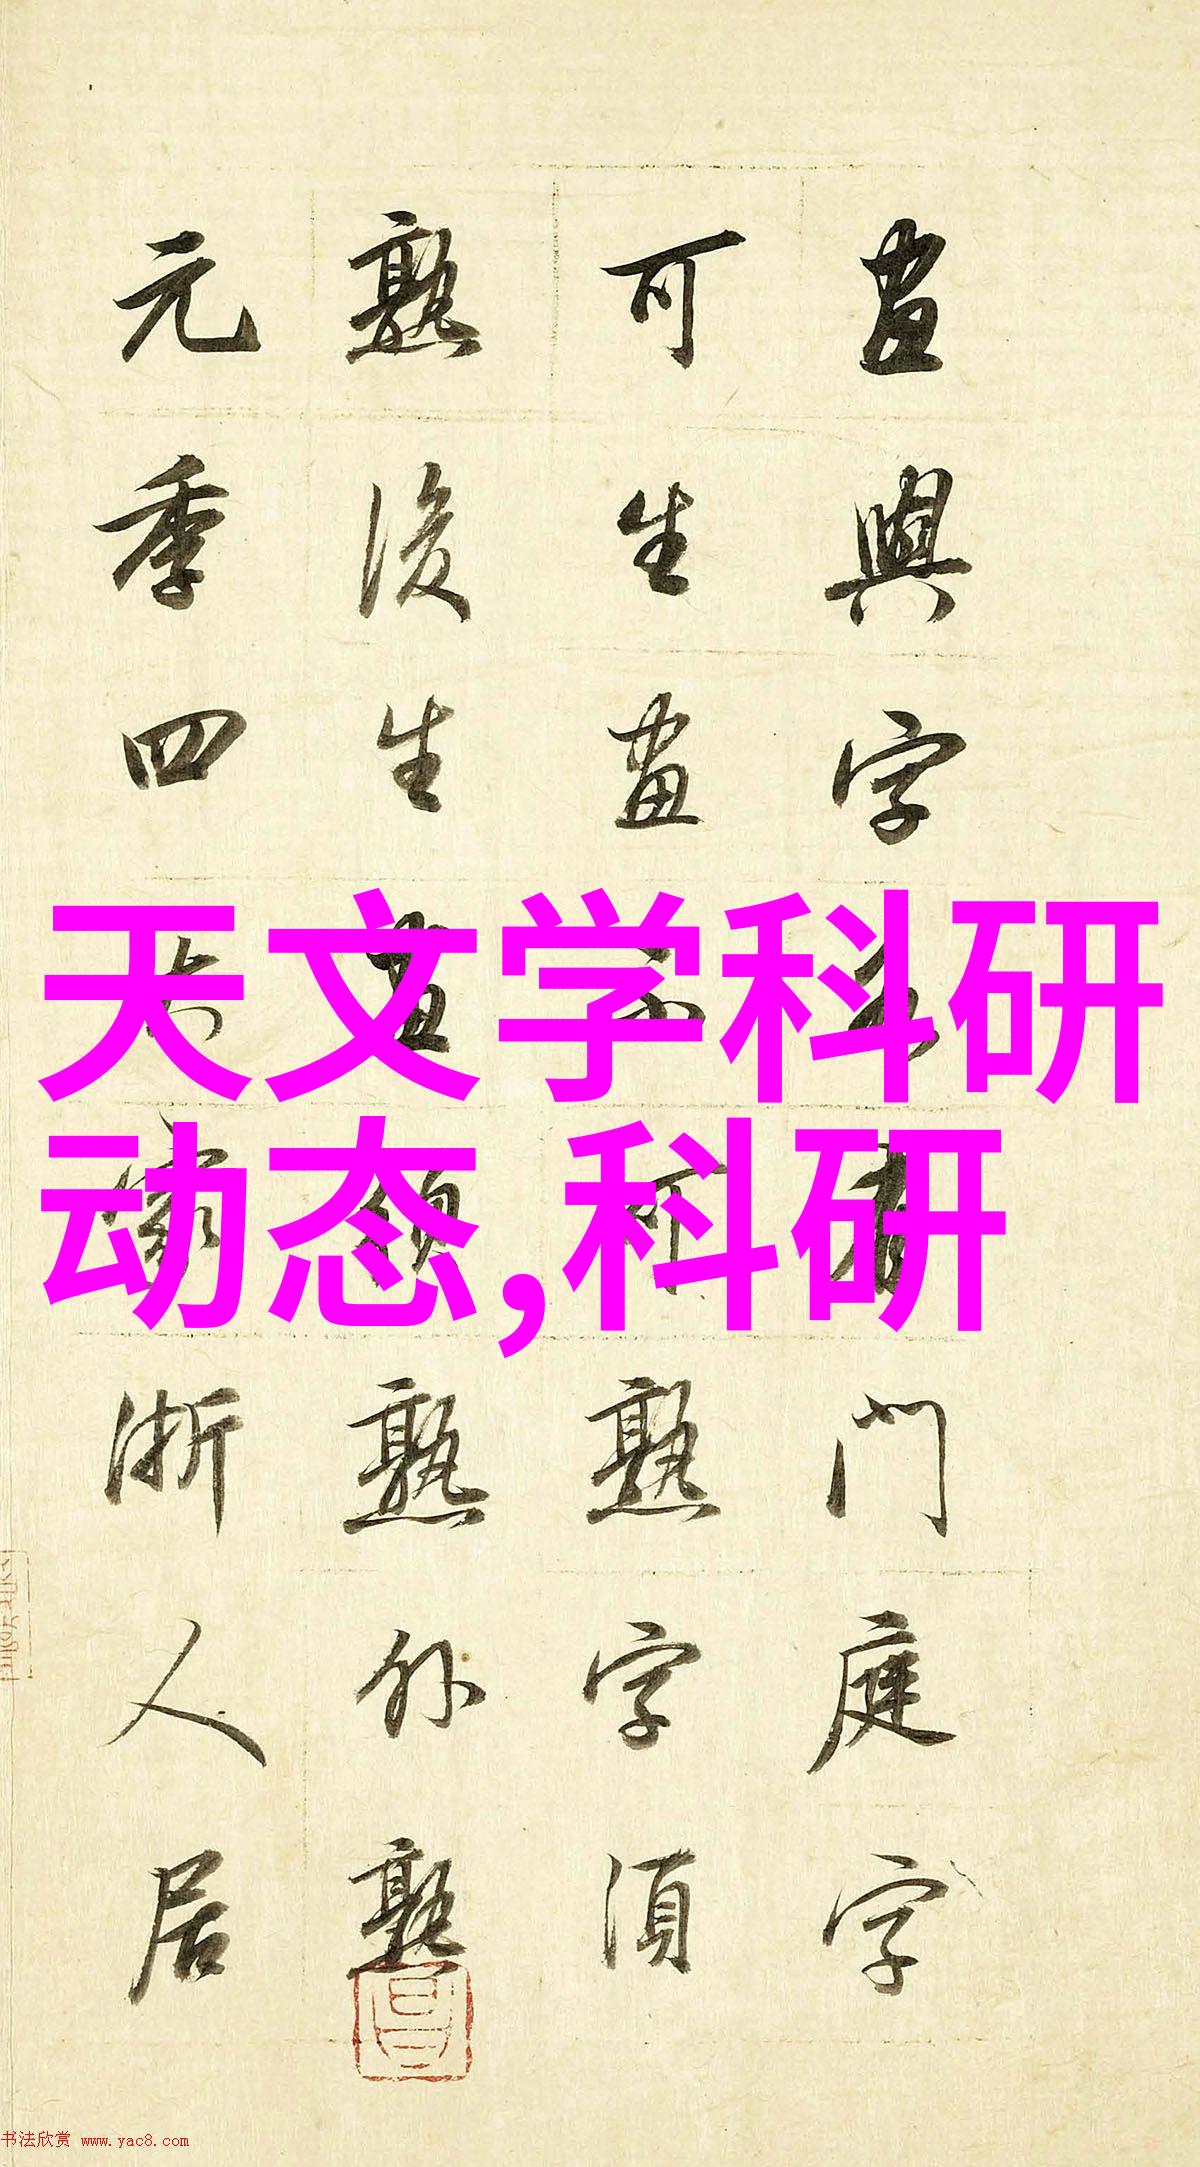 畫與字各有門庭字
可生畫不可熟字須
熟後生畫須熟外熟
元季四大家浙人居
天文学科研
动态,科研
书法欣赏 www.yac8.com